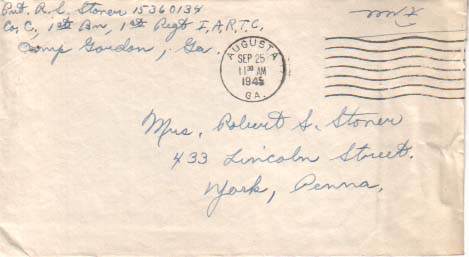 Pvt. R. S. Stoner 15360134
Co. C, 1st Bn, 1st Regt I.A.R.T.C.
Camp Gordon, Ga.
AUGUSTA
SEP 25
11 30 AM
1945
GA.
Mrs. Robert S. Stoner
433 Lincoln Street.
York, Penna.